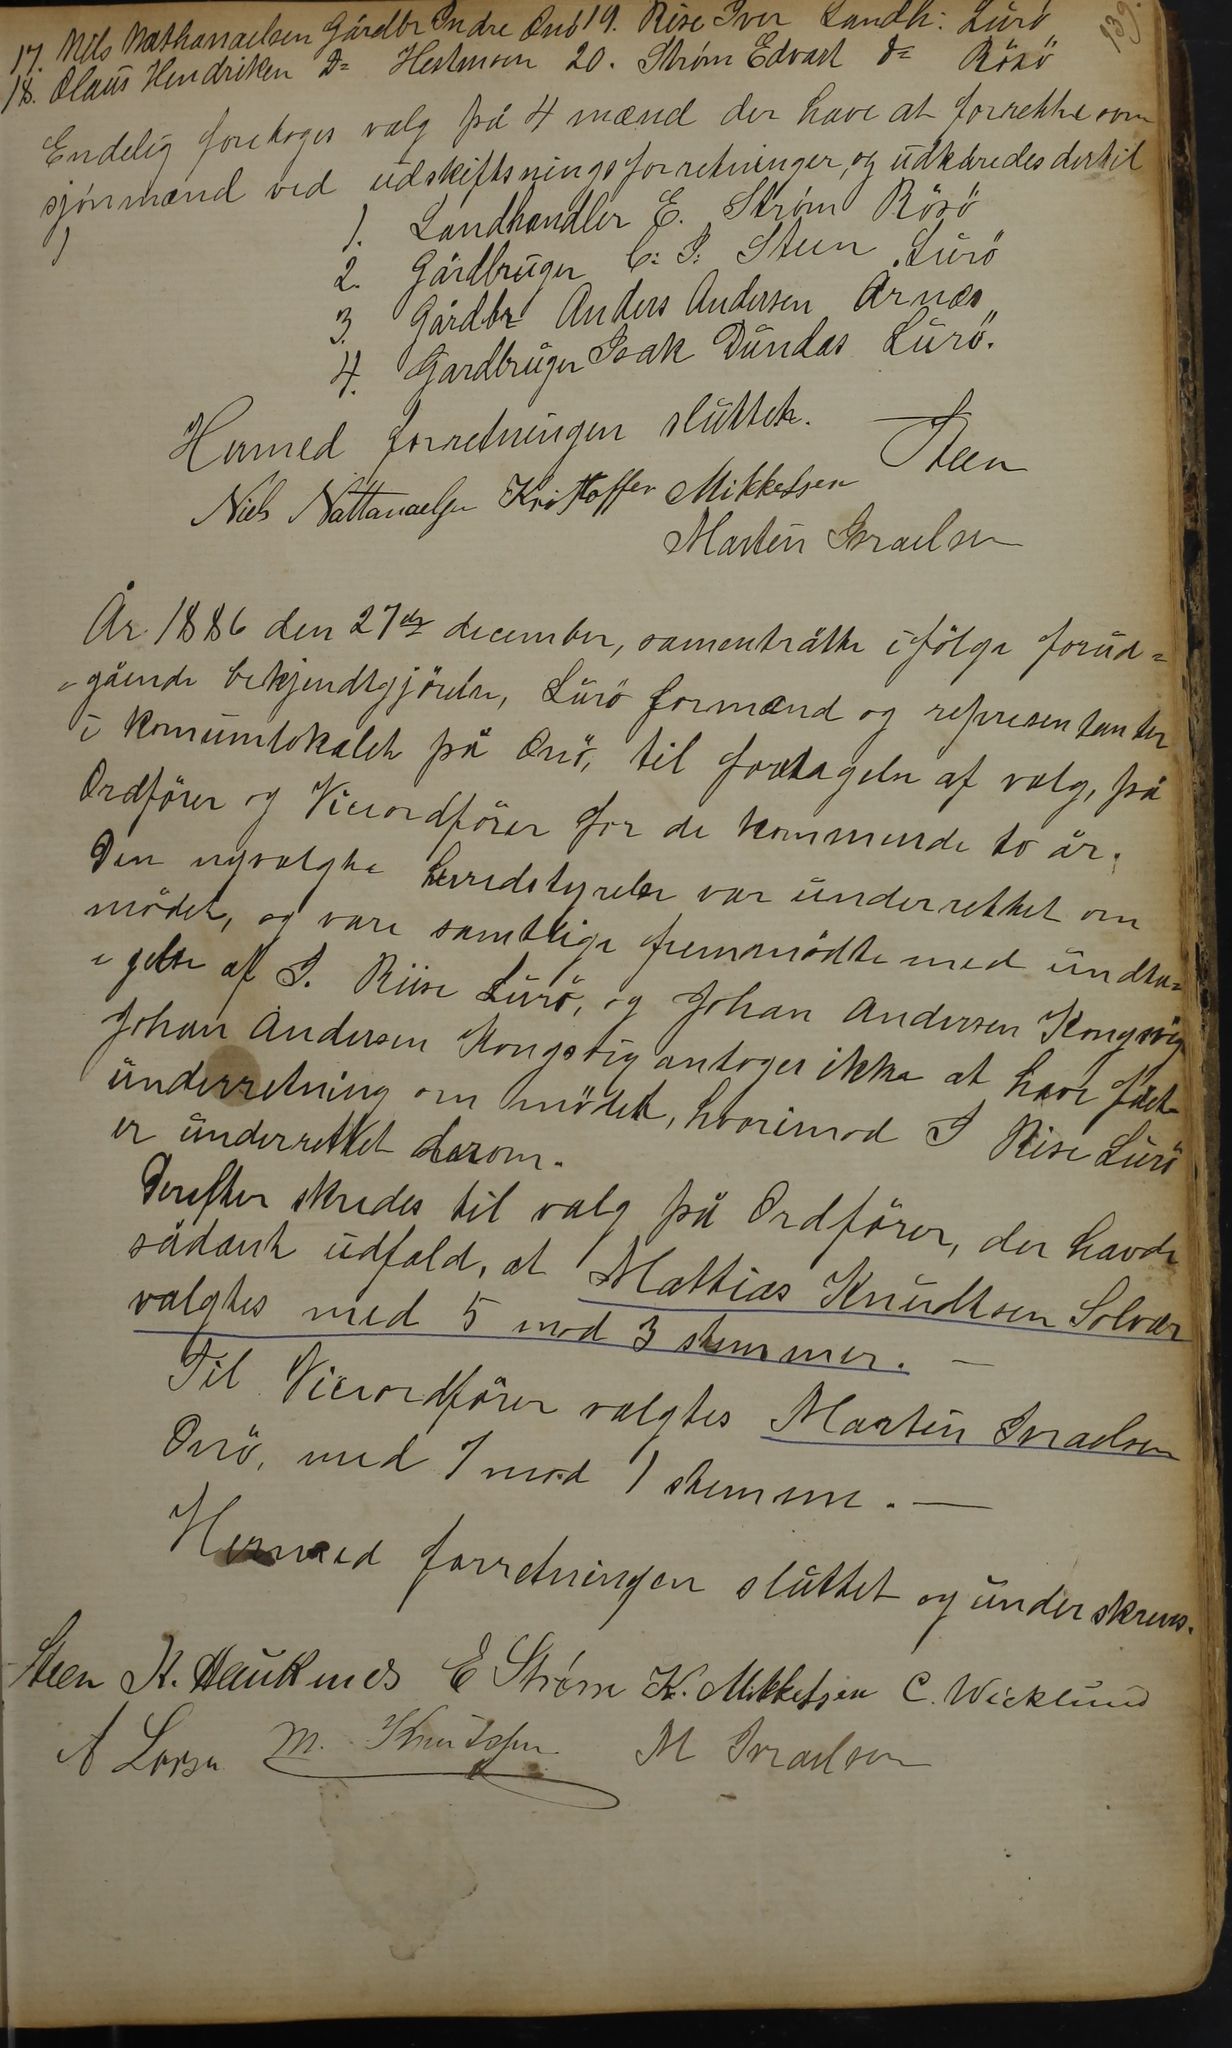 139.
17. Nils Nathanaelsen Gårdbr Indre Onö 19. Riise Iver Landh: Lurö
18. Olaus Hendriken D= Hestmoen 20. Strøm Edvart d= Rösö
Endelig foretoges valg på 4 mænd der have at forrette som
sjönmænd ved udskiftsningsforretninger, og udkåredes dertil
1. Landhandler E. Strøm Rösö
2. Gårdbruger C: P: Steen Lurö
3. Gårdbr Anders Andersen Arnæs
4. Gardbruger Isak Dundas Lurö.
Hermed forretningen sluttet.
Steen
Niels Nattanaelsen Kristoffer Mikkelsen
Martin Israelsen
År 1886 den 27de december, samentrådte ifölge forud=
=gående bekjendtgjörelse, Lurö formænd og representanter
i komunlokalet på Onö, til foretagelse af valg, på
Ordförer og Viceordförer for de kommende to år.
Den nyvalgte herredstyrelse var underrettet om
mödet, og vare samtlige fremmödte med undta=
=gelse af I. Riise Lurö, og Johan Andersen Kongsvig
Johan Andersen Kongsvig antoges ikke at have fået
underretning om mödet, hvorimod I Riise Lurö
er underrettet derom.
Derefter skredes til valg på Ordförer, der havde
sådant udfald, at Mattias Knudtsen Solvær
valgtes med 5 mod 3 stemmer. —
Til Viceordförer valgtes Martin Israelsen
Onö, med 7 mod 1 stemme. —
Hermed forretningen sluttet og underskrevs.
Steen K. Hauknes E Strøm K. Mikkelsen C. Wicklund
A Larsen M. Knutssen M Israelsen